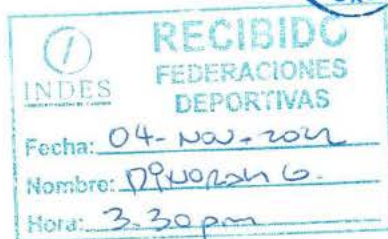 RECIBIDO
INDES
FEDERACIONES
DEPORTIVAS
Fecha: 04-NOV-2022
Nombre: Dinorah G.
Hora: 3:30 pm